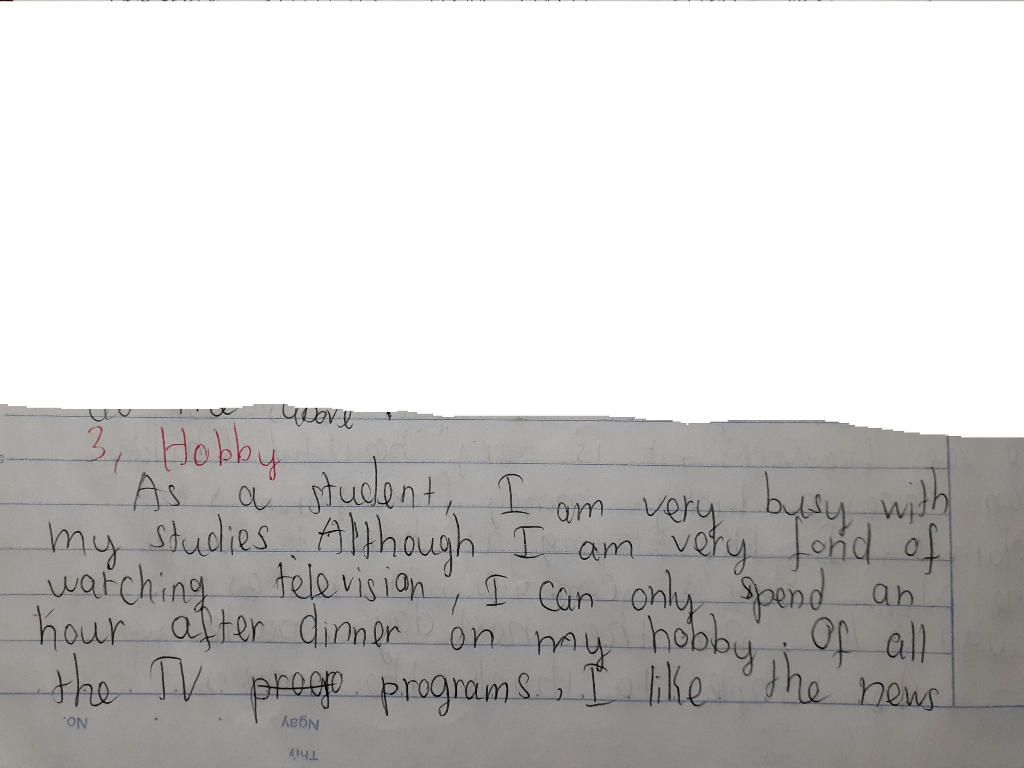 above.
3, Hobby
As a student, I am very busy with
my studies. Although I am very fond of
watching television, I can only spend an
hour after dinner on my hobby. Of all
the TV programs, I like the news
No. Ngày
Thứ